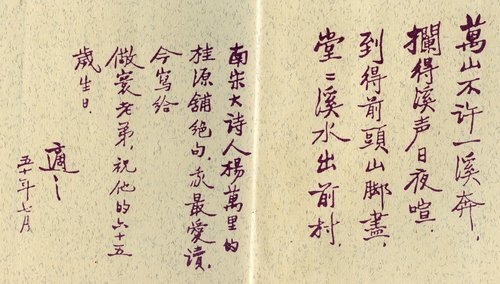 萬山不许一溪奔，
攔得溪声日夜喧．
到得前頭山脚盡，
堂〻溪水出前村．
南宋大诗人楊萬里的
桂源舖绝句，我最愛读，
今写给
儆寰老弟，祝他的六十五
歲生日．
適之
五十年七月